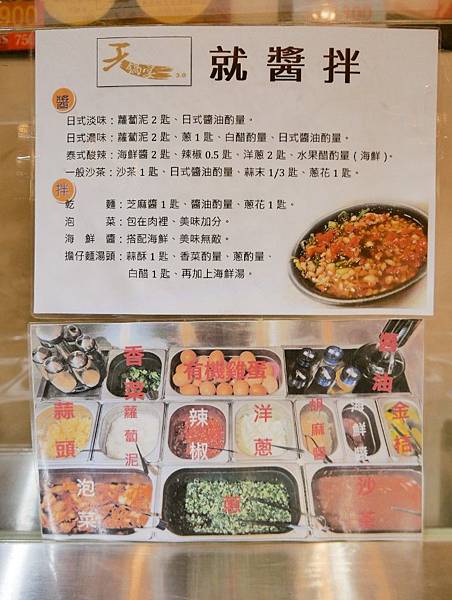 900
就醬拌
3.0
醬
日式淡味：蘿蔔泥2匙、日式醬油酌量。
日式濃味：蘿蔔泥2匙、蔥1匙、白醋酌量、日式醬油酌量。
泰式酸辣：海鮮醬2匙、辣椒0.5匙、洋蔥2匙、水果醋酌量(海鮮)。
一般沙茶：沙茶1匙、日式醬油酌量、蒜末1/3匙、蔥花1匙。
拌
乾麵：芝麻醬1匙、醬油酌量、蔥花1匙。
泡菜：包在肉裡、美味加分。
海鮮醬：搭配海鮮、美味無敵。
擔仔麵湯頭：蒜酥1匙、香菜酌量、蔥酌量、
白醋1匙、再加上海鮮湯。
香菜
有機雞蛋
醬油
蒜頭
蘿蔔泥
辣椒
洋蔥
胡麻醬
海鮮醬
金桔
泡菜
蔥
沙茶